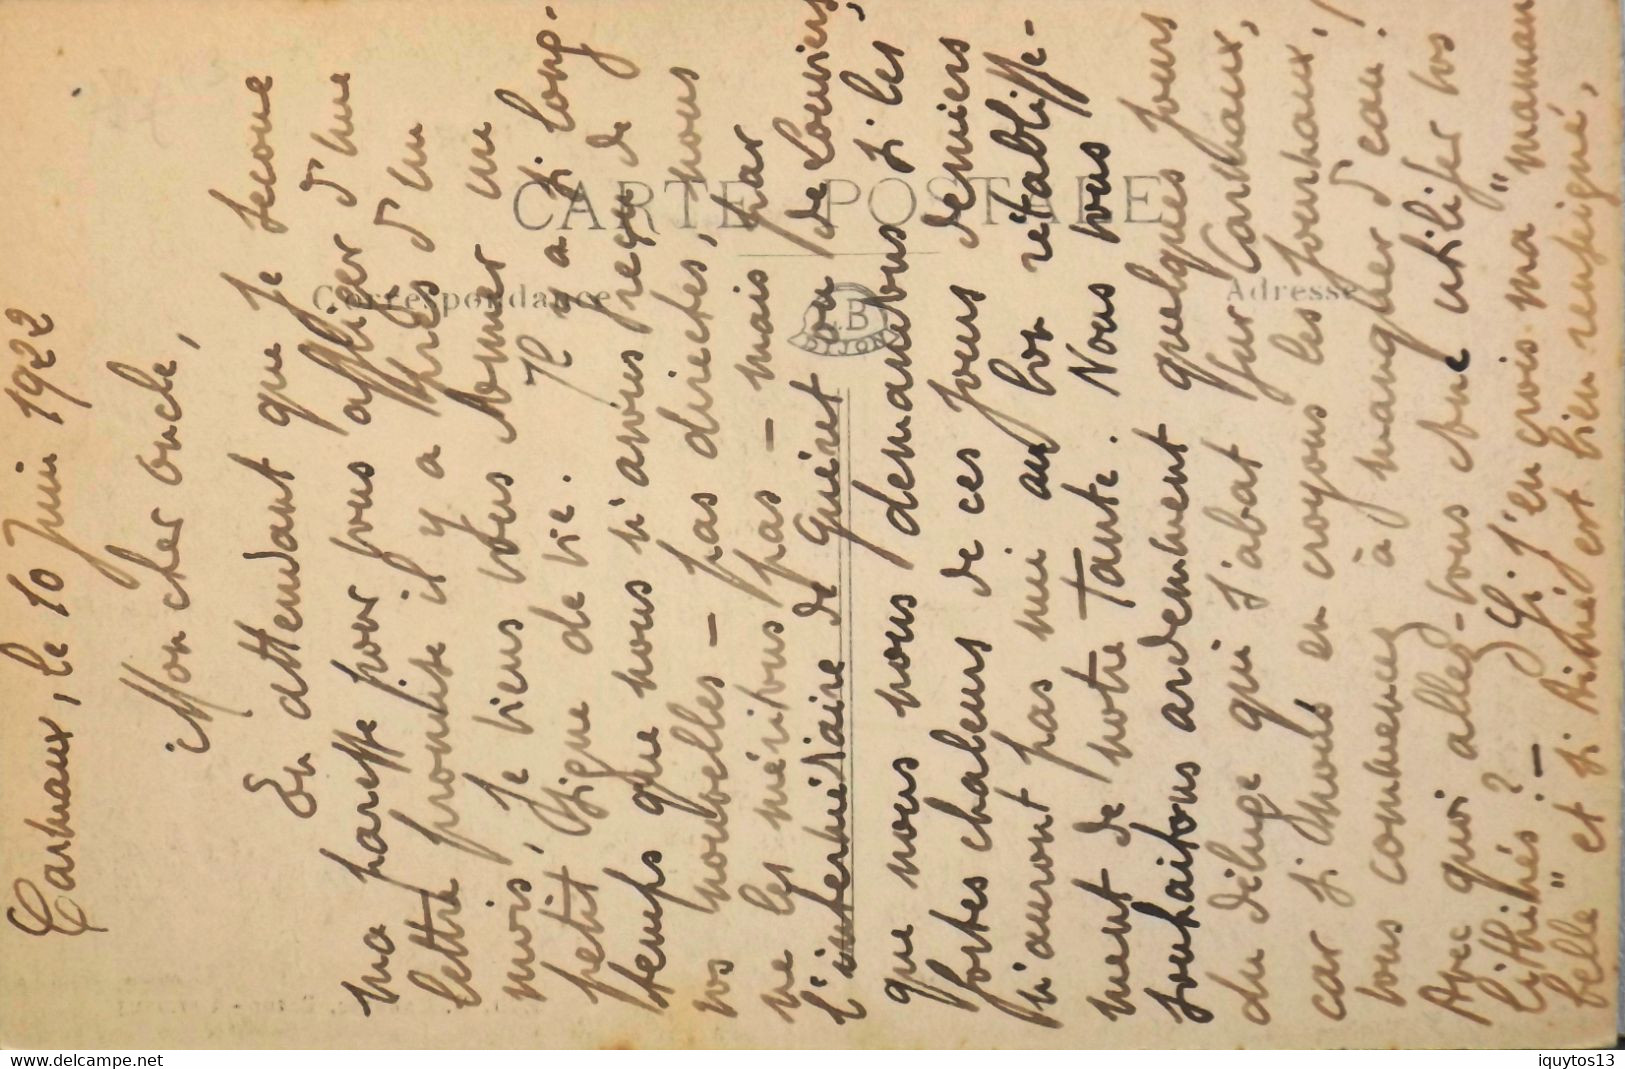 Carmaux, le 10 Juin 1922
Mon cher oncle,
En attendant que je secoue
ma paresse pour vous affliger d'une
lettre promise il y a près d'un
mois, je viens vous donner un
petit signe de vie. Il y a si long-
temps que nous n'avons reçu de
vos nouvelles – pas directes, nous
ne les méritons pas – mais par
l'intermédiaire de Guéret ou de Louviers,
que nous nous demandons si les
fortes chaleurs de ces jours derniers
n'auront pas nui au bon rétablisse-
ment de notre Tante. Nous vous
souhaitons ardemment quelques jours
du déluge qui s'abat sur Carmaux,
car si nous en croyons les journaux,
vous commencez à manquer d'eau!
Avec quoi allez-vous donc utiliser vos
lithinés? – Si j'en crois ma "maman
belle" et si Aimé est bien renseigné,
CARTE POSTALE
Correspondance
Adresse
B
DIJON
delcampe.net
iquytos13